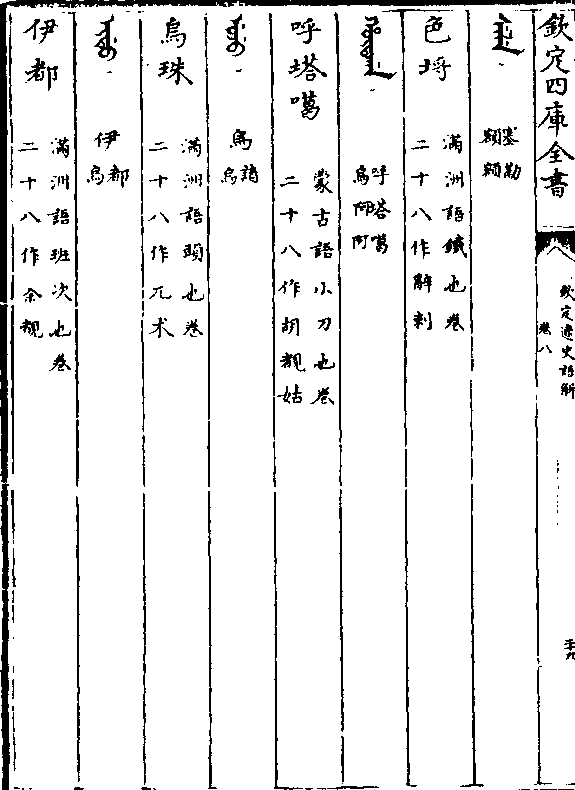 欽定四庫全書
欽定遼史語解
卷八
ᠰᡝᠯᡝ
塞勒
額額
色埒
滿洲語鐵也卷
二十八作辭剌
ᡥᡡᡨᠠᡤᠠ
呼塔噶
烏阿阿
呼塔噶
蒙古語小刀也卷
二十八作胡覩姑
ᡠᠵᡠ
烏
諸
烏
烏珠
滿洲語頭也卷
二十八作兀术
ᡳᡩᡠ
伊
都
烏
伊都
滿洲語班次也卷
二十八作余覩